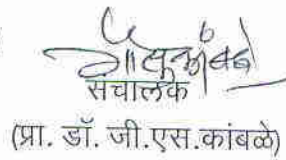 संचालक
(प्रा. डॉ. जी.एस.कांबळे)